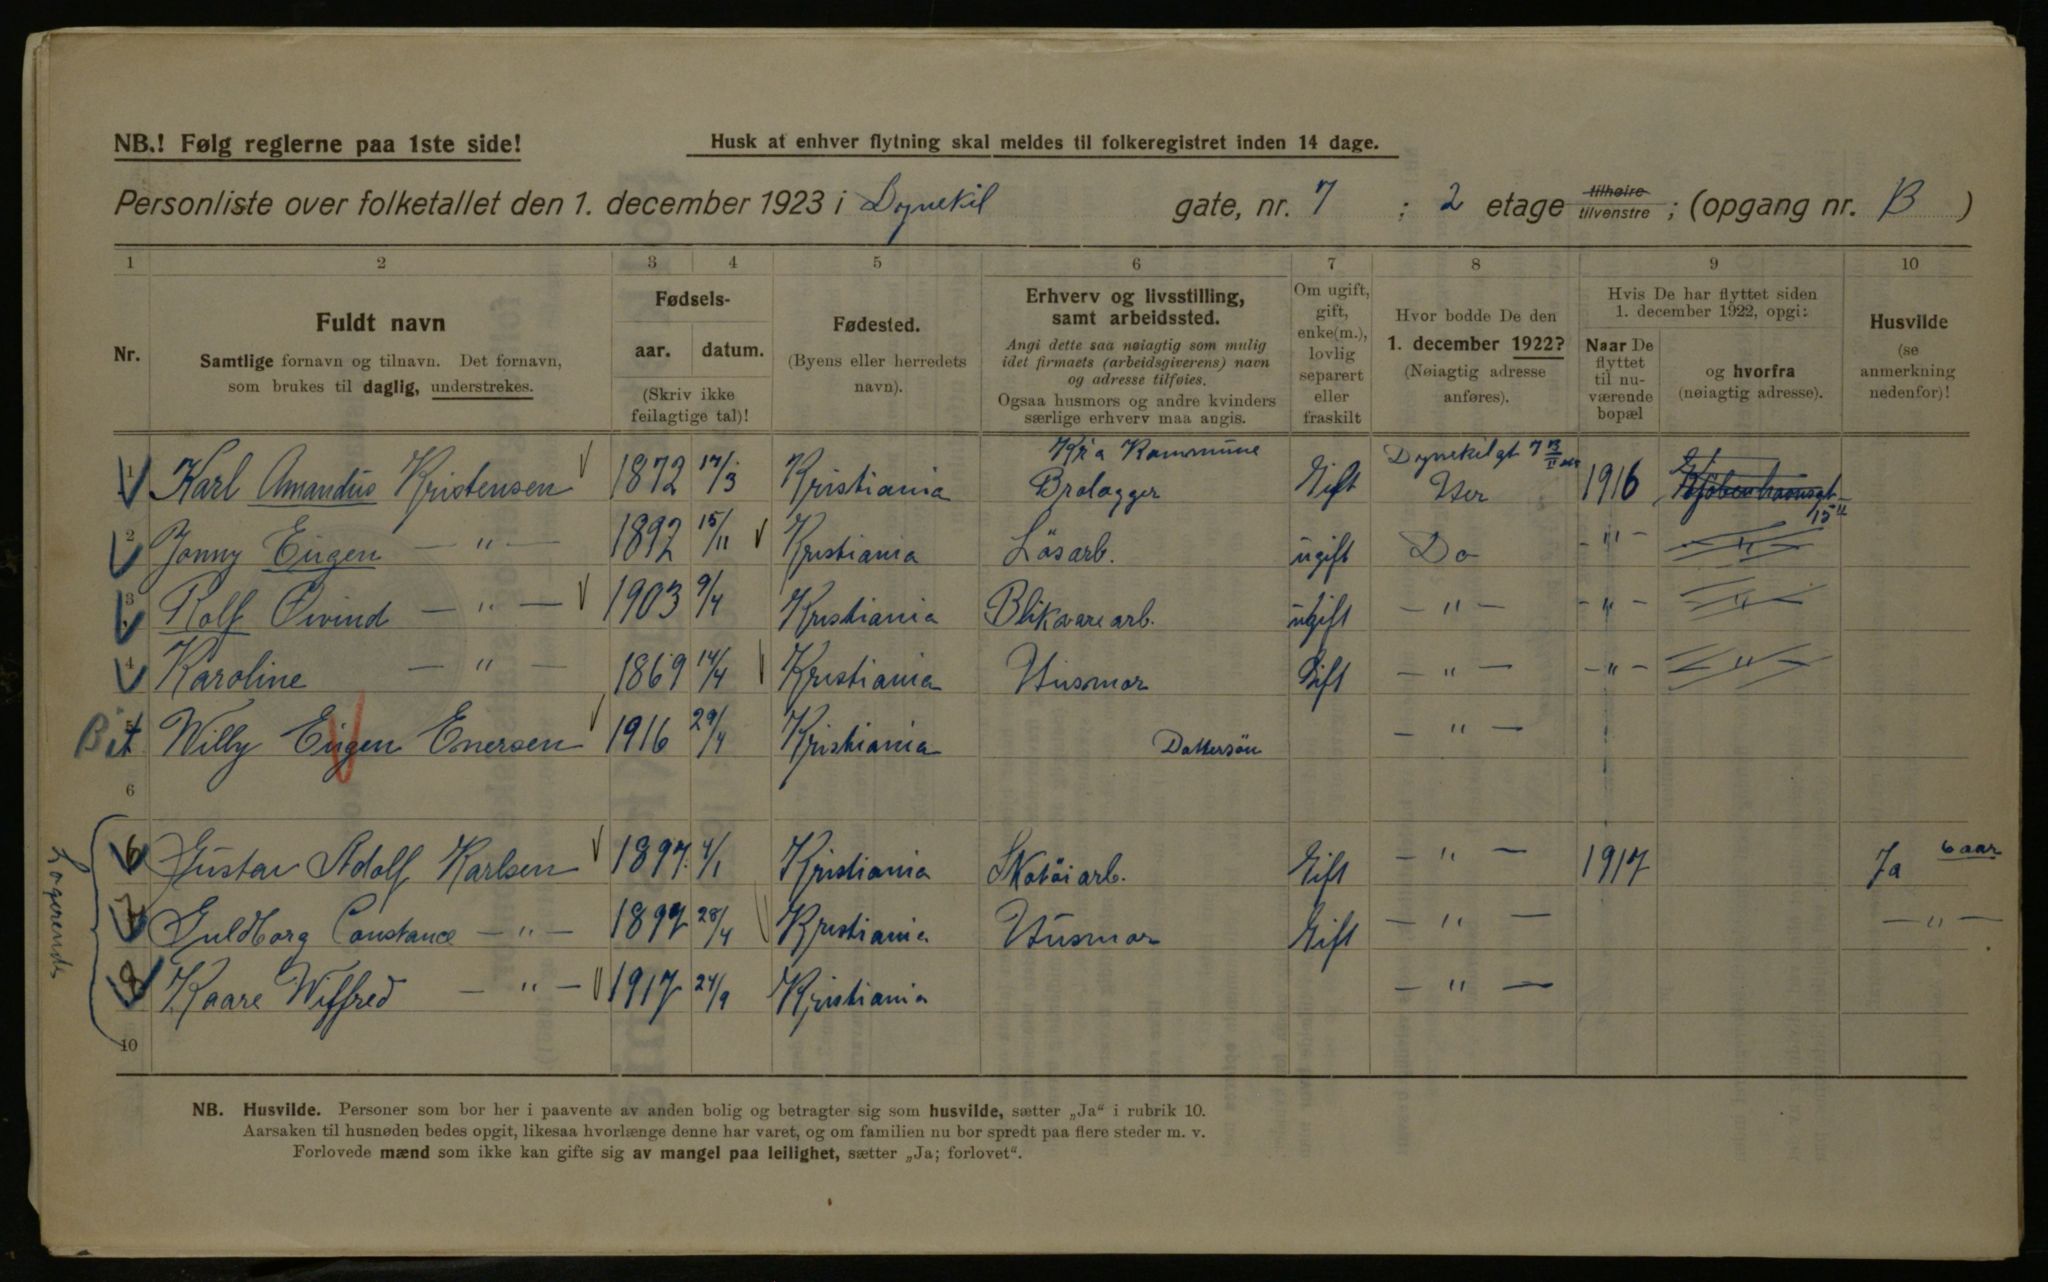 NB.! Følg reglerne paa 1ste side!
Husk at enhver flytning skal meldes til folkeregistret inden 14 dage.
Personliste over folketallet den 1. december 1923 i Dynekil gate, nr. 7 ; 2 etage tilhøire tilvenstre ; (opgang nr. B )
1 2 3 4 5 6 7 8 9 10
Nr.
Fuldt navn
Samtlige fornavn og tilnavn. Det fornavn,
som brukes til daglig, understrekes.
Fødsels-
aar. datum.
(Skriv ikke
feilagtige tal)!
Fødested.
(Byens eller herredets
navn).
Erhverv og livsstilling,
samt arbeidssted.
Angi dette saa nøiagtig som mulig
idet firmaets (arbeidsgiverens) navn
og adresse tilføies.
Ogsaa husmors og andre kvinders
særlige erhverv maa angis.
Om ugift,
gift,
enke(m.),
lovlig
separert
eller
fraskilt
Hvor bodde De den
1. december 1922?
(Nøiagtig adresse
anføres).
Hvis De har flyttet siden
1. december 1922, opgi:
Naar De
flyttet
til nu-
værende
bopæl
og hvorfra
(nøiagtig adresse).
Husvilde
(se
anmerkning
nedenfor)!
Kr a Kommune Dynekilgt 7 B II
1 Karl Amandus Kristensen 1872 17/3 Kristiania Brolægger Gift Her 1916 Kjøbenhavnsgt 15 II
2 Jonny Eugen — " — 1892 15/11 Kristiania Lösarb. ugift Do - " - "
3 Rolf Øivind — " — 1903 9/4 Kristiania Blikvarearb. ugift — " — - " - "
4 Karoline — " — 1869 14/4 Kristiania Husmor Gift — " — - " - "
5 Bit Willy Eugen Enersen 1916 29/4 Kristiania Dattersön — " —
6
Logerende
6 Gustav Adolf Karlsen 1897. 4/1 Kristiania Skotöiarb. Gift — " — 1917 Ja 6 aar
7 Guldborg Constance — " — 1897 28/4 Kristiania Husmor Gift — " — — " —
8 Kaare Wiffred — " — 1917 24/9 Kristiania — " —
10
NB. Husvilde. Personer som bor her i paavente av anden bolig og betragter sig som husvilde, sætter „Ja“ i rubrik 10.
Aarsaken til husnøden bedes opgit, likesaa hvorlænge denne har varet, og om familien nu bor spredt paa flere steder m. v.
Forlovede mænd som ikke kan gifte sig av mangel paa leilighet, sætter „Ja; forlovet“.